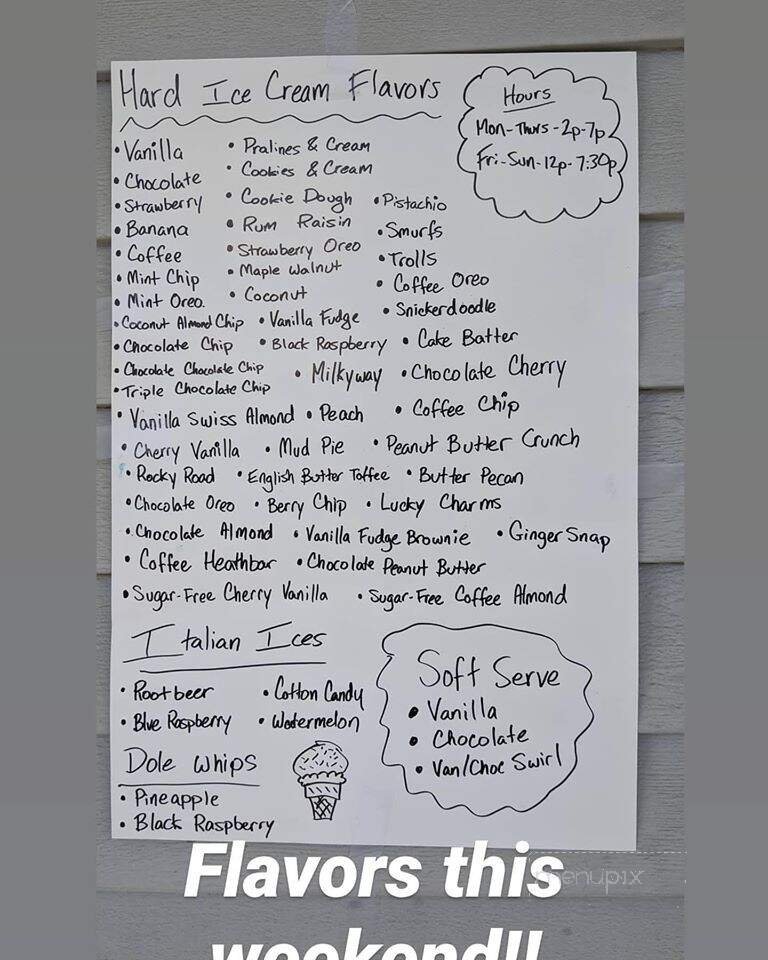 Hard Ice Cream Flavors
Hours
Mon-Thurs-2p-7p
Fri-Sun-12p-7:30p
• Vanilla • Pralines & Cream
• Chocolate • Cookies & Cream
• Strawberry • Cookie Dough • Pistachio
• Banana • Rum Raisin • Smurfs
• Coffee • Strawberry Oreo • Trolls
• Mint Chip • Maple Walnut • Coffee Oreo
• Mint Oreo. • Coconut • Snickerdoodle
• Coconut Almond Chip • Vanilla Fudge • Cake Batter
• Chocolate Chip • Black Raspberry • Chocolate Cherry
• Chocolate Chocolate Chip • Milkyway • Coffee Chip
• Triple Chocolate Chip
• Vanilla Swiss Almond • Peach
• Cherry Vanilla • Mud Pie • Peanut Butter Crunch
• Rocky Road • English Butter Toffee • Butter Pecan
• Chocolate Oreo • Berry Chip • Lucky Charms
• Chocolate Almond • Vanilla Fudge Brownie • Ginger Snap
• Coffee Heathbar • Chocolate Peanut Butter
• Sugar-Free Cherry Vanilla • Sugar-Free Coffee Almond
Italian Ices
• Rootbeer • Cotton Candy
• Blue Raspberry • Watermelon
Soft Serve
• Vanilla
• Chocolate
• Van/Choc Swirl
Dole Whips
• Pineapple
• Black Raspberry
Flavors this
weekend!!
menupix